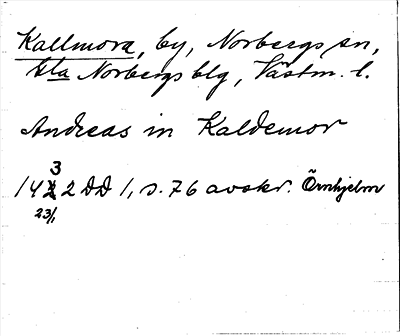 Kallmora, by, Norbergs sn,
Gla Norbergs blg, Västm. l.
Andreas in Kaldemor
3
1422 DD 1, s. 76 avskr. Örnhjelm
23/1